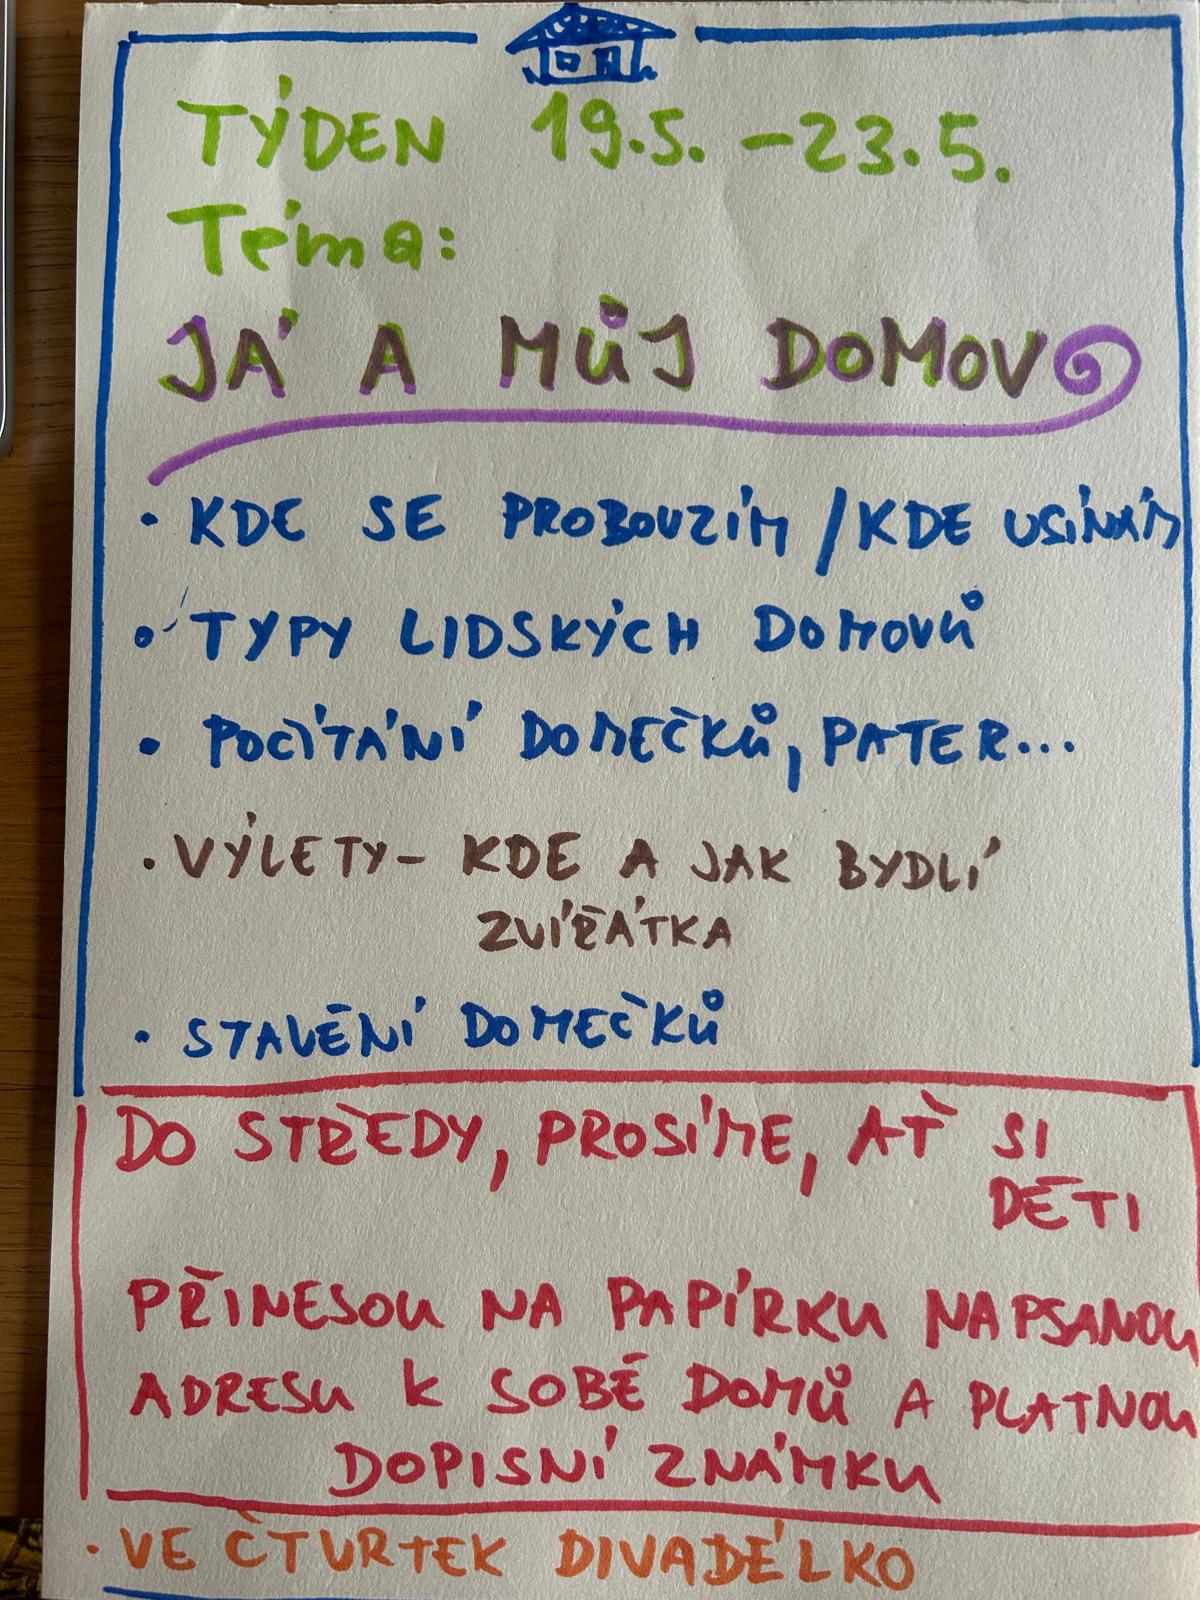 TÝDEN 19.5. - 23.5.
Téma:
JÁ A MŮJ DOMOV
• KDE SE PROBOUZÍM / KDE USÍNÁM
• TYPY LIDSKÝCH DOMOVŮ
• POČÍTÁNÍ DOMEČKŮ, PATER...
• VÝLETY - KDE A JAK BYDLÍ
ZVÍŘÁTKA
• STAVĚNÍ DOMEČKŮ
DO STŘEDY, PROSÍME, AŤ SI
DĚTI
PŘINESOU NA PAPÍRKU NAPSANOU
ADRESU K SOBĚ DOMŮ A PLATNOU
DOPISNÍ ZNÁMKU
• VE ČTVRTEK DIVADÉLKO